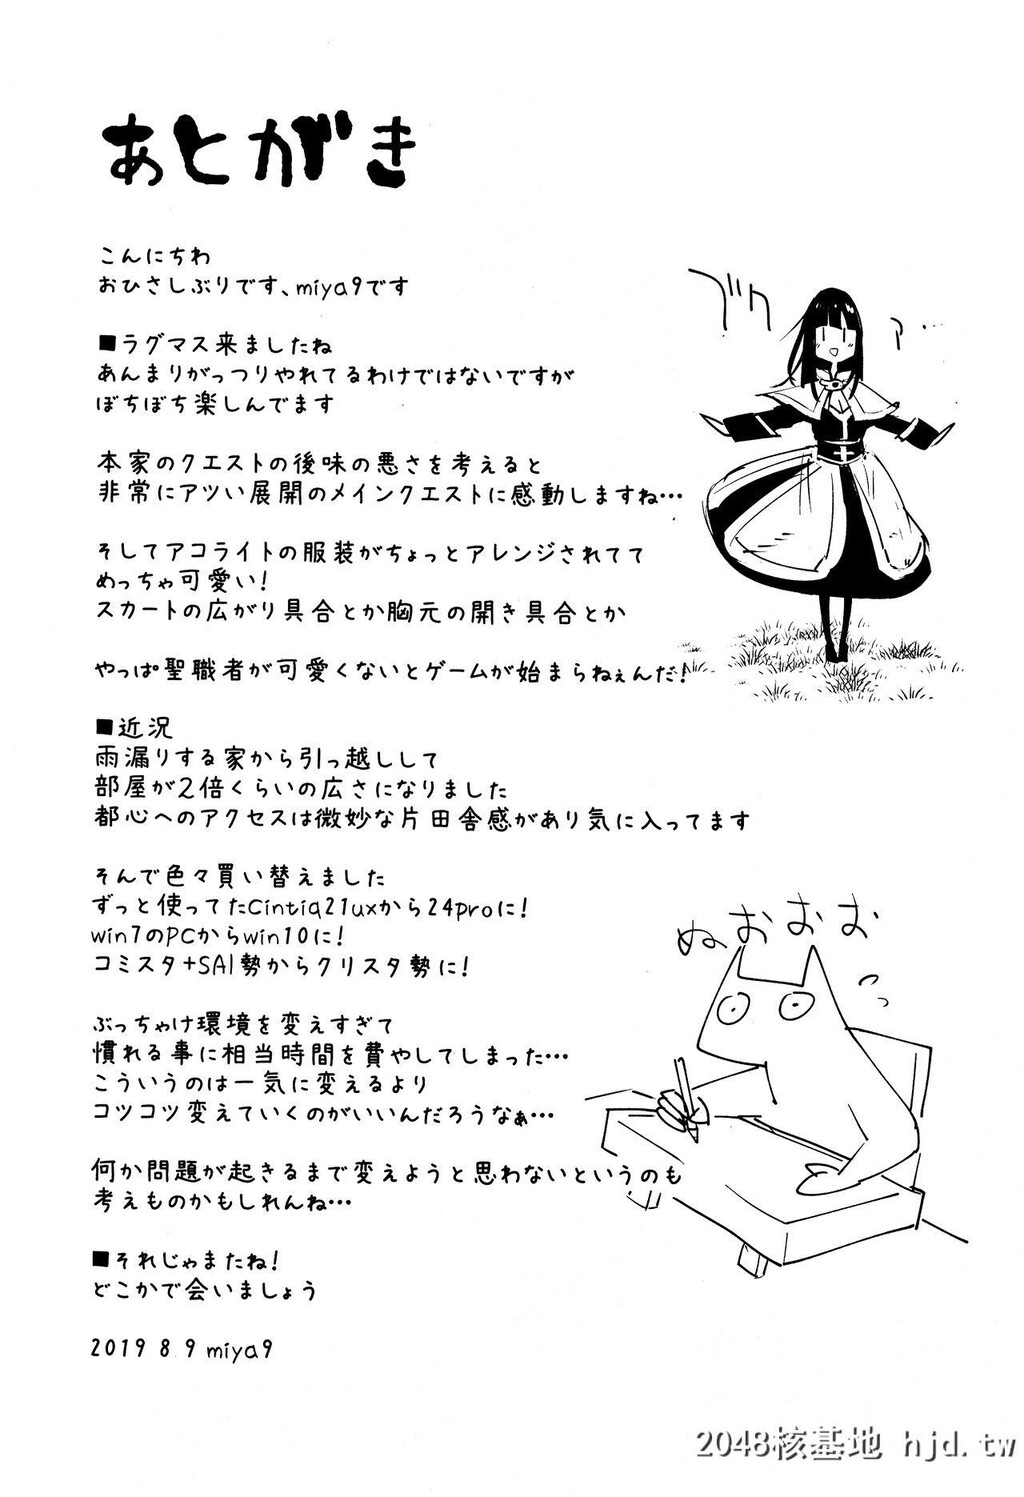 あとがき
こんにちわ
おひさしぶりです、miya9です
■ラグマス来ましたね
あんまりがっつりやれてるわけではないですが
ぼちぼち楽しんでます
本家のクエストの後味の悪さを考えると
非常にアツい展開のメインクエストに感動しますね…
そしてアコライトの服装がちょっとアレンジされてて
めっちゃ可愛い!
スカートの広がり具合とか胸元の開き具合とか
やっぱ聖職者が可愛くないとゲームが始まらねぇんだ!
■近況
雨漏りする家から引っ越しして
部屋が2倍くらいの広さになりました
都心へのアクセスは微妙な片田舎感があり気に入ってます
そんで色々買い替えました
ずっと使ってたCintiq21uxから24proに!
win7のPCからwin10に!
コミスタ+SAI勢からクリスタ勢に!
ぬおおお
ぶっちゃけ環境を変えすぎて
慣れる事に相当時間を費やしてしまった…
こういうのは一気に変えるより
コツコツ変えていくのがいいんだろうなぁ…
何か問題が起きるまで変えようと思わないというのも
考えものかもしれんね…
■それじゃまたね!
どこかで会いましょう
2019 8 9 miya9
2048核基地 hjd.tw